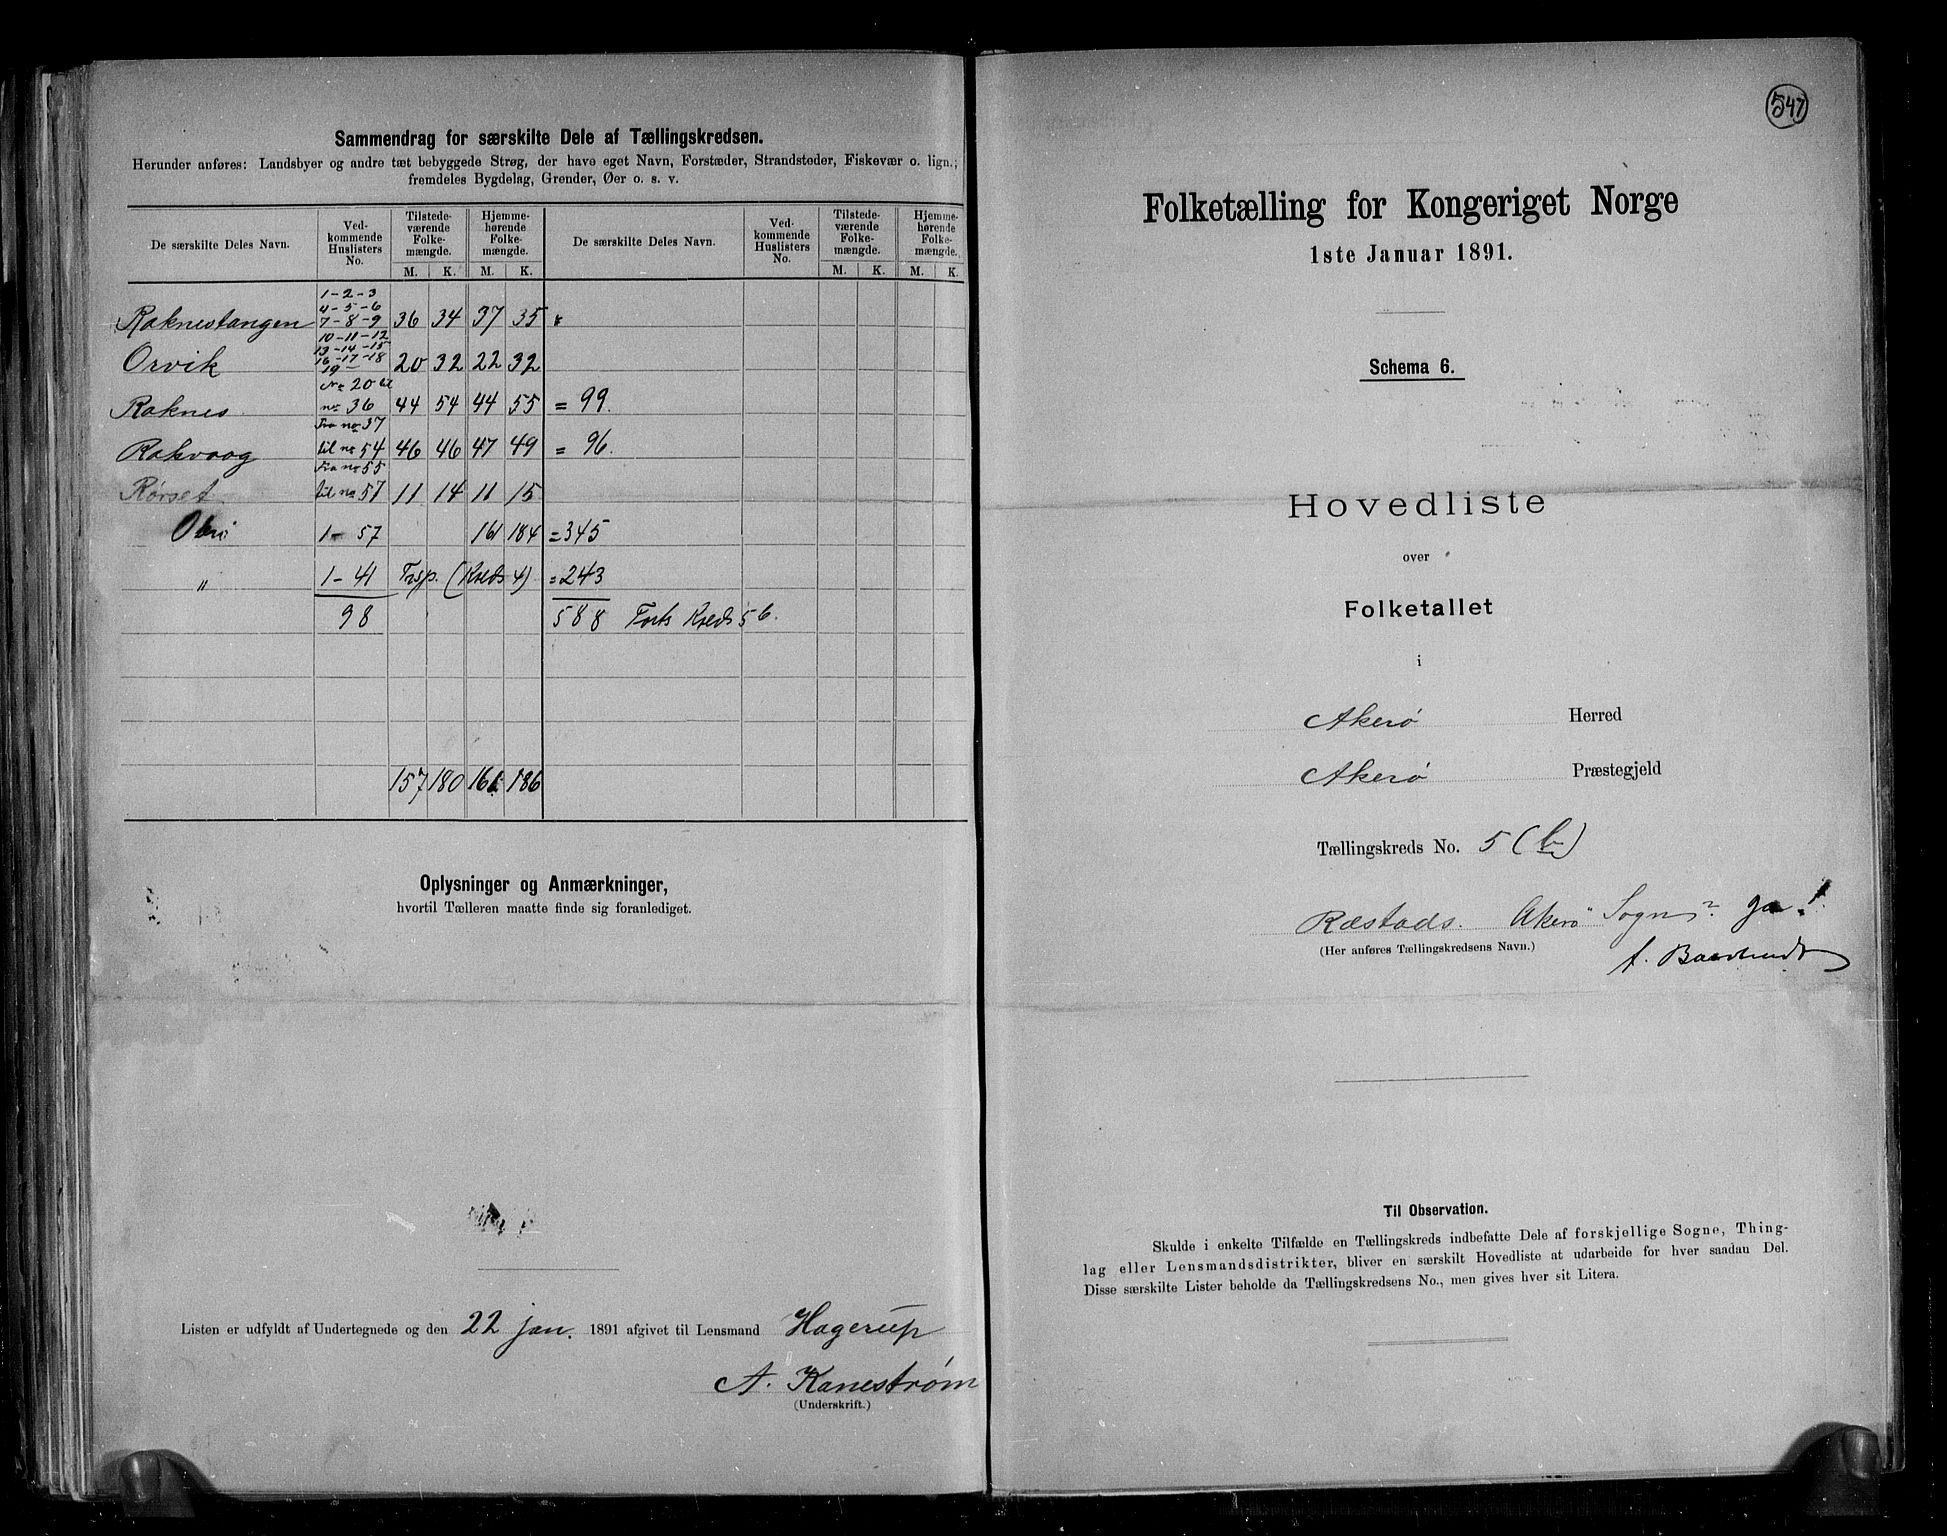 Sammendrag for særskilte Dele af Tællingskredsen.
Herunder anføres: Landsbyer og andre tæt bebyggede Strøg, der have eget Navn, Forstæder, Strandsteder, Fiskevær o. lign.;
fremdeles Bygdelag, Grender, Øer o. s. v.
De særskilte Deles Navn. Ved-kommende Huslisters No. Tilstede-værende Folke-mængde. Hjemme-hørende Folke-mængde. De særskilte Deles Navn. Ved-kommende Huslisters No. Tilstede-værende Folke-mængde. Hjemme-hørende Folke-mængde.
M. K. M. K. M. K. M. K.
1-2-3
4-5-6
Raknestangen 7-8-9 36 34 37 35
10-11-12
13-14-15
Orvik 16-17-18 20 32 22 32
19-
No 20 til
Raknes no 36 44 54 44 55 = 99.
Fra no 37
Rakvaag til no 54 46 46 47 49 = 96.
Fra no 55
Rørset til no 57 11 14 11 15
1-57 161 184 = 345
" 1-41 Trsp. (Kreds 4) = 243
98 588 Forts Kreds 5 b.
157 180 161 186
Oplysninger og Anmærkninger,
hvortil Tælleren maatte finde sig foranlediget.
Listen er udfyldt af Undertegnede og den 22 jan. 1891 afgivet til Lensmand Hagerup
A. Kanestrøm
(Underskrift.)
547
Folketælling for Kongeriget Norge
1ste Januar 1891.
Schema 6.
Hovedliste
over
Folketallet
i
Akerø Herred
Akerø Præstegjeld
Tællingskreds No. 5 (b)
Ræstads. Akerø Sogn? ja!
(Her anføres Tællingskredsens Navn.)
Til Observation.
Skulde i enkelte Tilfælde en Tællingskreds indbefatte Dele af forskjellige Sogne, Thing-
lag eller Lensmandsdistrikter, bliver en særskilt Hovedliste at udarbeide for hver saadan Del.
Disse særskilte Lister beholde da Tællingskredsens No., men gives hver sit Litera.